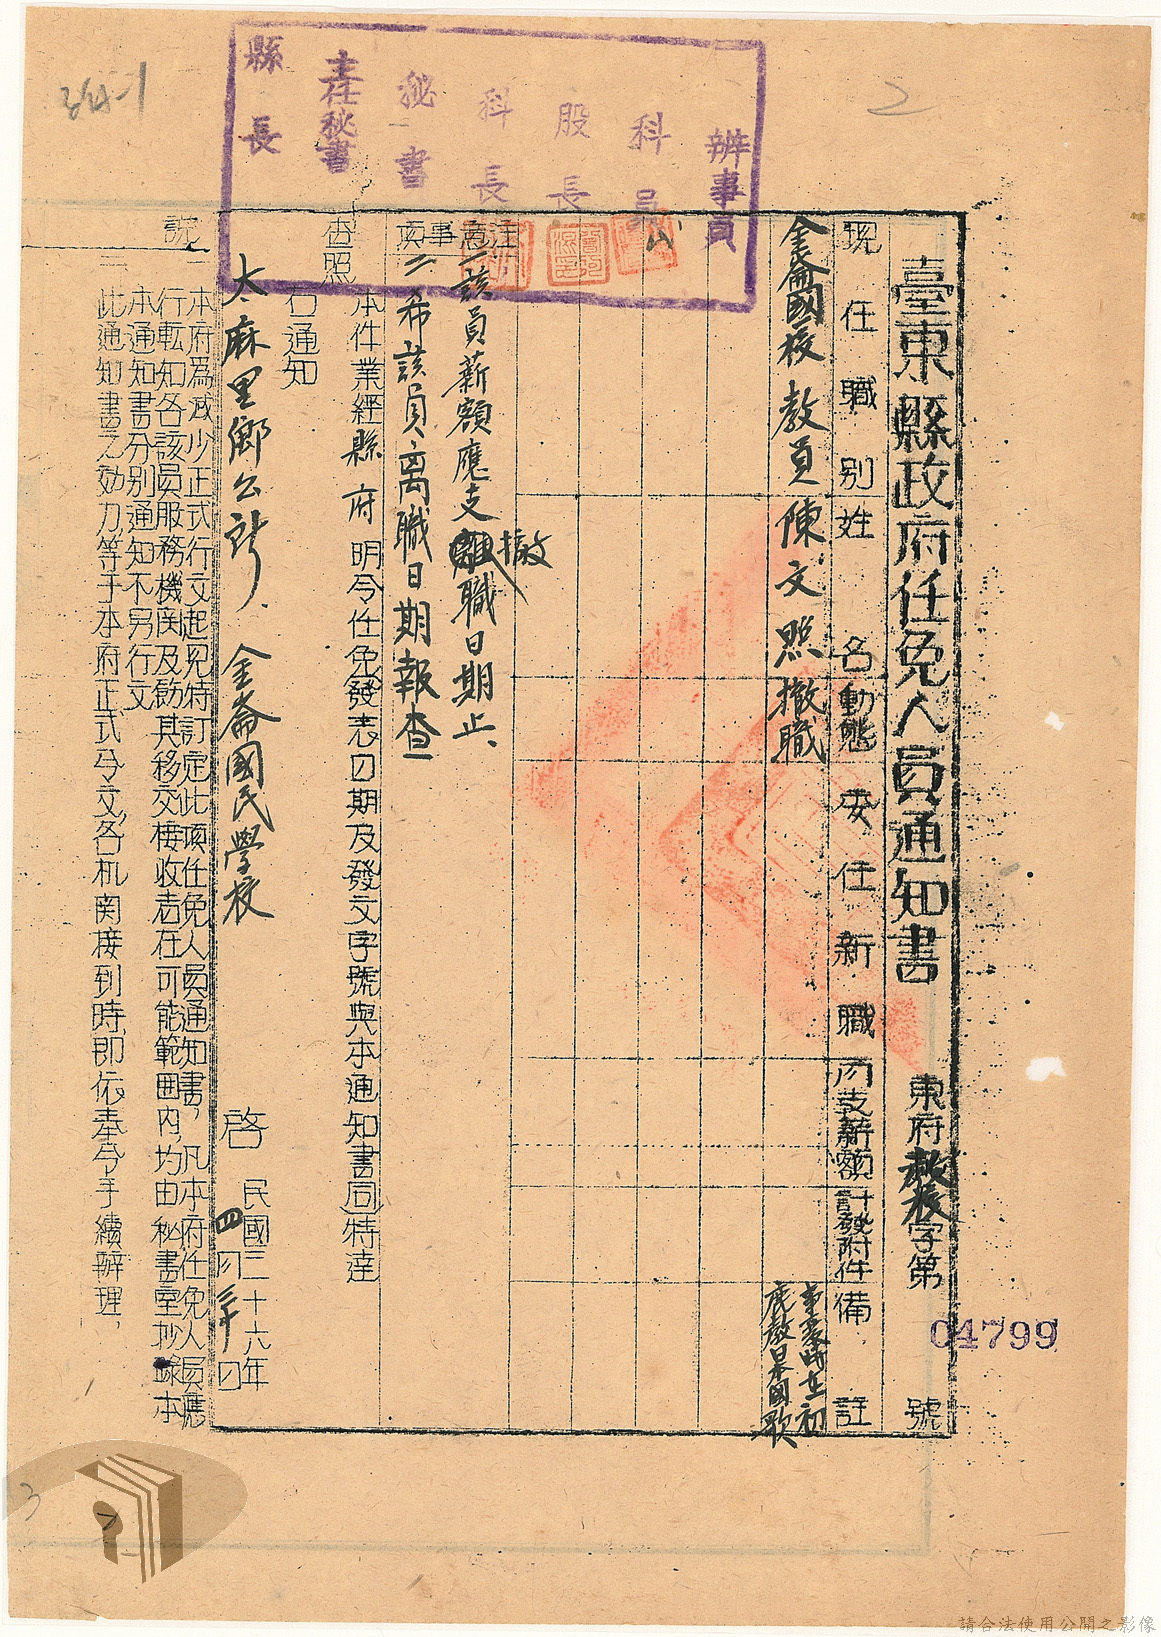 臺東縣政府任免人員通知書
東府教振字第
04799
號
現任職別
姓名
動態
委任新職
月支薪額
計發附件
備註
金崙國校教員
陳文照
撤職
事變時在初
鹿教日本國歌
注意事項
一該員薪額應支撤職日期止、
二希該員离職日期報查
本件業經縣府明令任免發表日期及發文字號與本通知書同特達
查照
右通知
太麻里鄉公所、金崙國民學校
啓
民國三十六年
四月三十日
說
一本府為減少正式行文起見特訂定此項任免人員通知書，凡本府任免人員應
行転知各該員服務機関及飭其移交接收者在可能範囲內，均由秘書室抄錄本
本通知書分別通知不另行文
二此通知書之効力等于本府正式令文，各机関接到時，即依奉令手續辦理，
縣長
主任秘書
秘書
科長
股長
科員
辦事員
2
3
請合法使用公開之影像